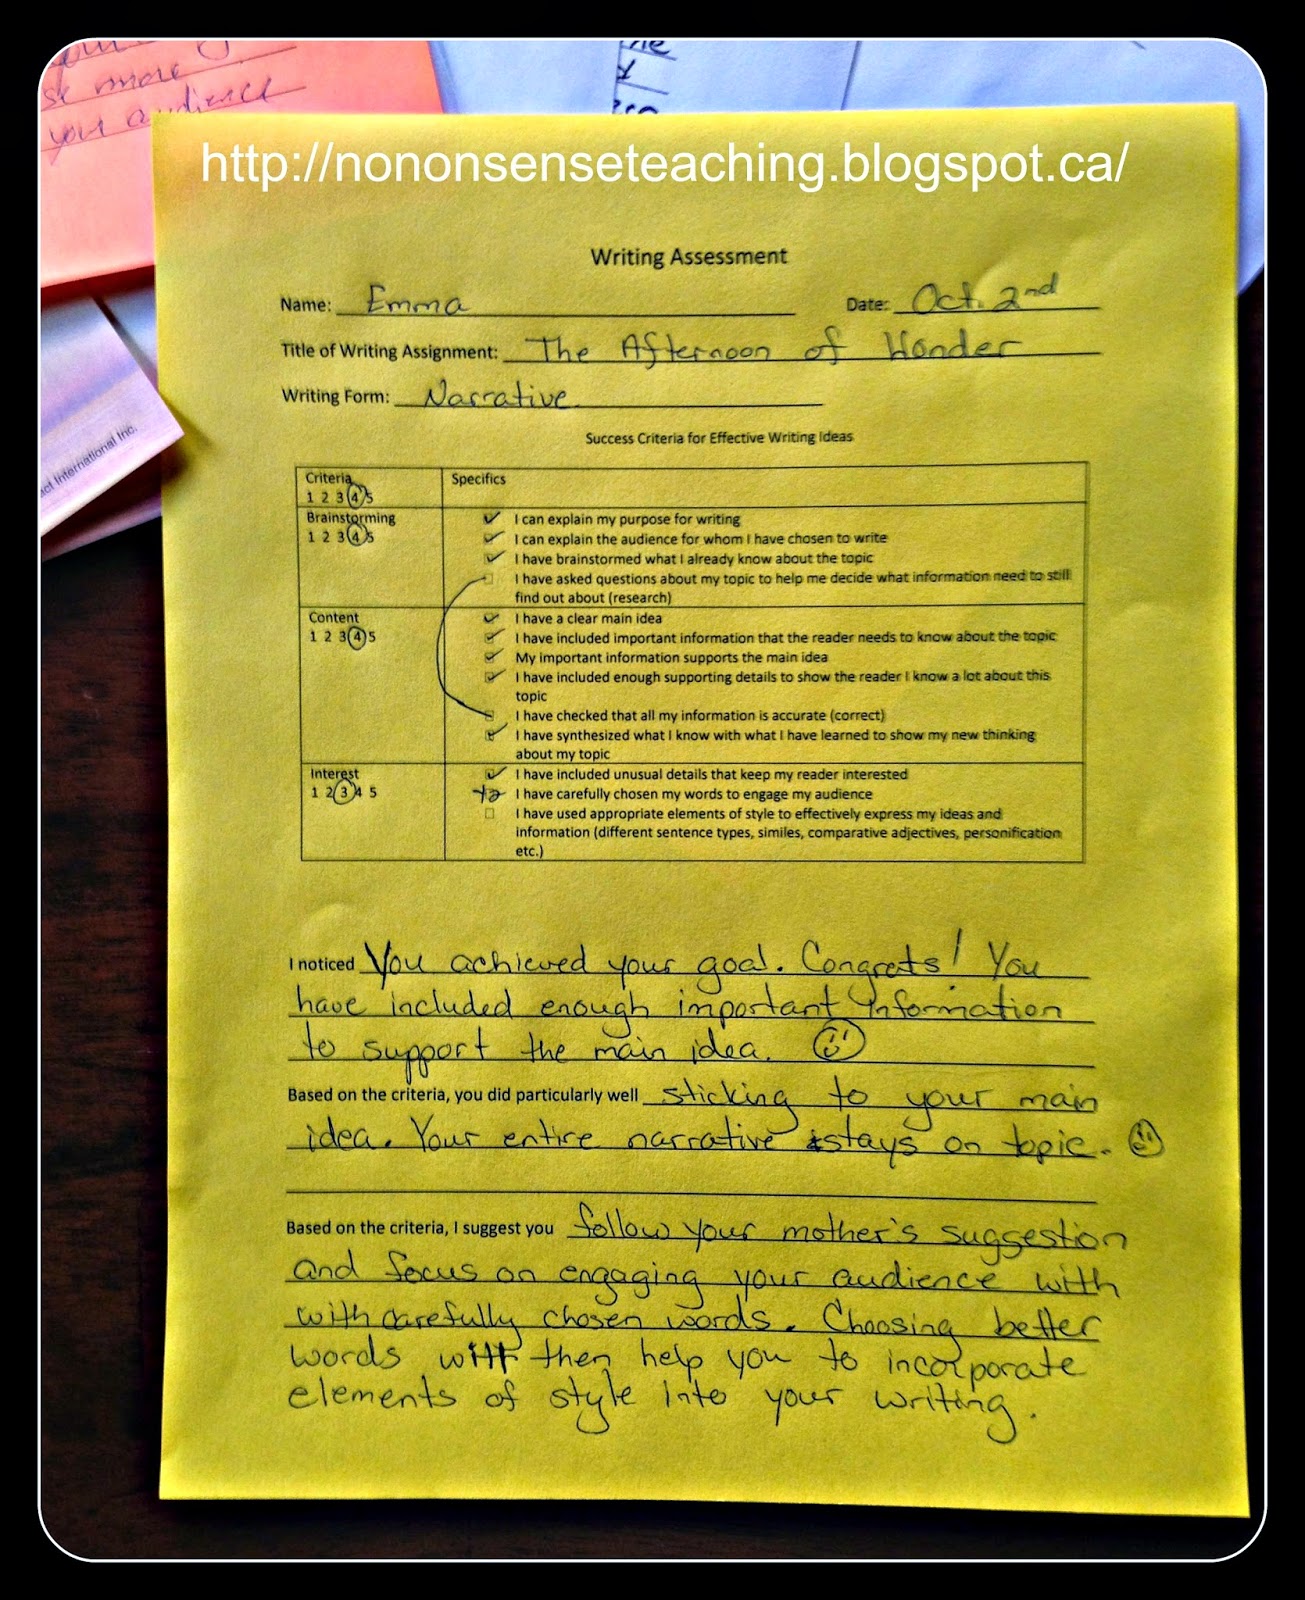 se more
you audience
http://nononsenseteaching.blogspot.ca/
act International Inc.
Writing Assessment
Name: Emma Date: Oct. 2nd
Title of Writing Assignment: The Afternoon of Wonder
Writing Form: Narrative
Success Criteria for Effective Writing Ideas
Criteria Specifics
1 2 3 4 5
Brainstorming
1 2 3 4 5
I can explain my purpose for writing
I can explain the audience for whom I have chosen to write
I have brainstormed what I already know about the topic
I have asked questions about my topic to help me decide what information need to still
find out about (research)
Content
1 2 3 4 5
I have a clear main idea
I have included important information that the reader needs to know about the topic
My important information supports the main idea
I have included enough supporting details to show the reader I know a lot about this
topic
I have checked that all my information is accurate (correct)
I have synthesized what I know with what I have learned to show my new thinking
about my topic
Interest
1 2 3 4 5
I have included unusual details that keep my reader interested
I have carefully chosen my words to engage my audience
I have used appropriate elements of style to effectively express my ideas and
information (different sentence types, similes, comparative adjectives, personification
etc.)
I noticed You achieved your goal. Congrats! You
have included enough important information
to support the main idea.
Based on the criteria, you did particularly well sticking to your main
idea. Your entire narrative stays on topic.
Based on the criteria, I suggest you follow your mother's suggestion
and focus on engaging your audience with
with carefully chosen words. Choosing better
words will then help you to incorporate
elements of style into your writing.